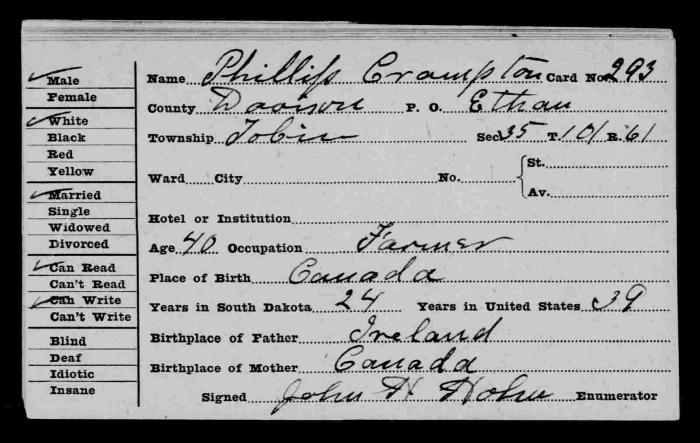 Male
Female
White
Black
Red
Yellow
Married
Single
Widowed
Divorced
Can Read
Can't Read
Can Write
Can't Write
Blind
Deaf
Idiotic
Insane
Name Phillip Crompton Card No. 293
County Davison P. O. Ethan
Township Tobin Sec 35 T. 101 R. 61
Ward City No. St.
Av.
Hotel or Institution
Age 40 Occupation Farmer
Place of Birth Canada
Years in South Dakota 24 Years in United States 39
Birthplace of Father Ireland
Birthplace of Mother Canada
Signed John H Hohn Enumerator